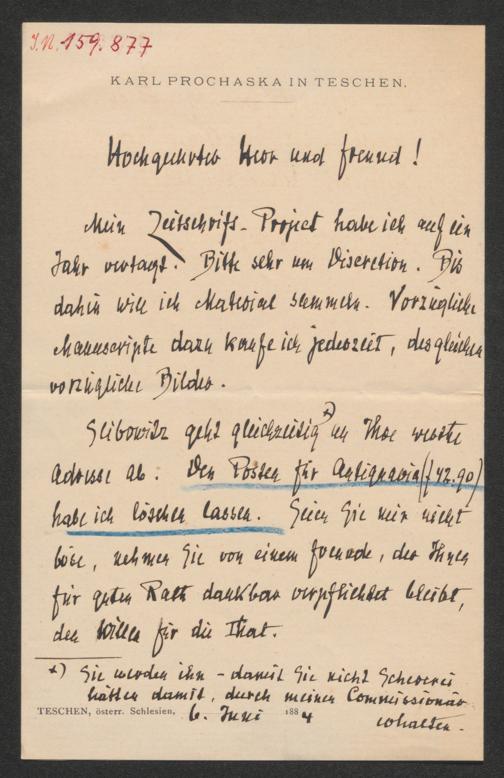 I.N. 159.877
KARL PROCHASKA IN TESCHEN.
Hochgeehrter Herr und Freund!
Mein Zeitschrifts-Project habe ich auf ein
Jahr vertagt. Bitte sehr um Discretion. Bis
dahin will ich Material sammeln. Vorzügliche
Manuscripte dazu kaufe ich jederzeit, desgleichen
vorzügliche Bilder.
geht gleichzeitig *) an Ihre werthe
Adresse ab. Den Posten für Antiquaria (f 42.90)
habe ich löschen lassen. Seien Sie mir nicht
böse, nehmen Sie von einem Freunde, der Ihnen
für guten Rath dankbar verpflichtet bleibt,
den Willen für die That.
*) Sie werden ihn - damit Sie nicht Schererei
hätten damit, durch meinen Commissionär
TESCHEN, österr. Schlesien, 6. Juni 1884
erhalten.